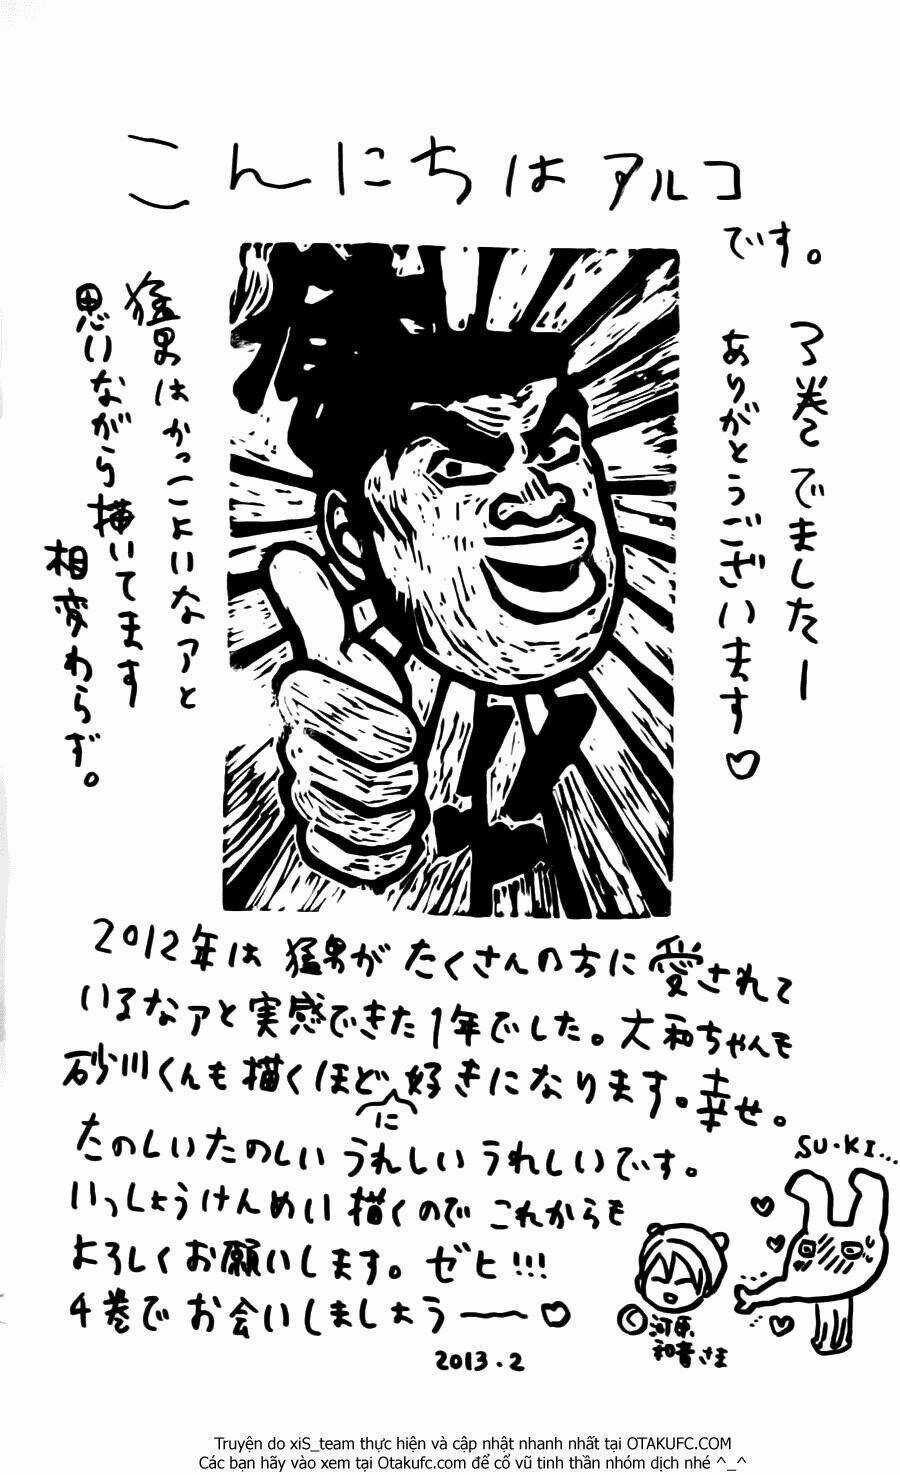 こんにちは アルコ
です。
3巻でましたー
ありがとうございます♡
猛男はかっこよいなァと
思いながら描いてます
相変わらず。
2012年は 猛男が たくさんの方に 愛されて
いるなァと実感できた1年でした。大和ちゃんも
砂川くんも描くほどに好きになります。幸せ。
たのしいたのしい うれしい うれしいです。
いっしょうけんめい 描くので これからも
よろしくお願いします。ゼヒ!!!
4巻で お会いしましょうーー♡
2013.2
SU・KI...
©河原
和音さま
Truyện do xiS_team thực hiện và cập nhật nhanh nhất tại OTAKUFC.COM
Các bạn hãy vào xem tại Otakufc.com để cổ vũ tinh thần nhóm dịch nhé ^_^